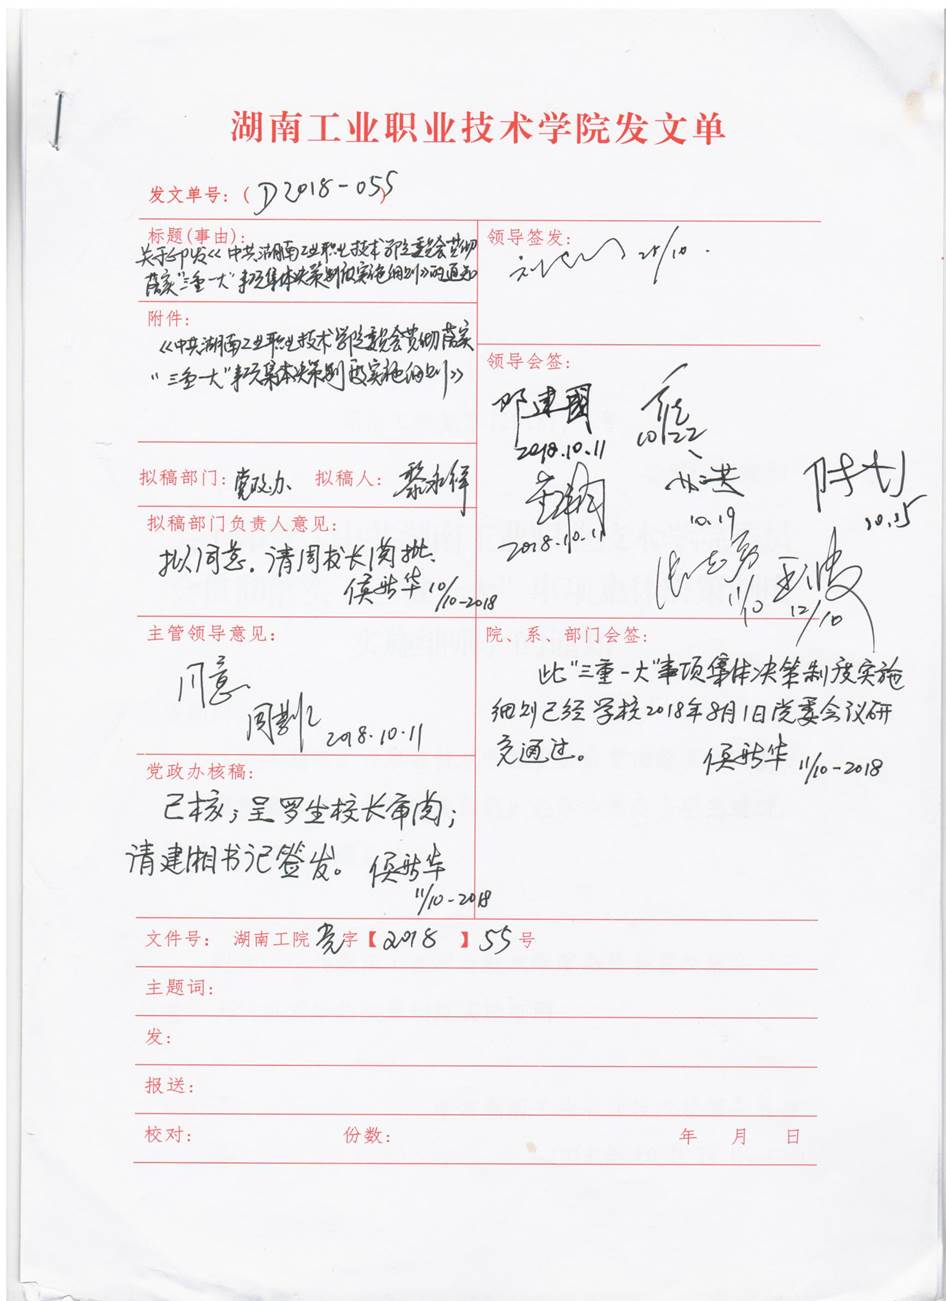 湖南工业职业技术学院发文单
发文单号：( D2018-055 )
标题(事由)：
关于印发《中共湖南工业职业技术学院委员会贯彻
落实“三重一大”事项集体决策制度实施细则》的通知
附件：
《中共湖南工业职业技术学院委员会贯彻落实
“三重一大”事项集体决策制度实施细则》
拟稿部门：党政办 拟稿人：黎永祥
拟稿部门负责人意见：
拟同意，请周校长阅批。
侯新华 10/10-2018
主管领导意见：
同意
2018.10.11
党政办核稿：
已核；呈罗坐校长审阅；
请建湘书记签发。侯新华
11/10-2018
领导签发：
25/10.
领导会签：
邓建国
2018.10.11
10/22
2018.10.11
10.19
10.25
11/10
12/10
院、系、部门会签：
此“三重一大”事项集体决策制度实施
细则已经学校2018年8月1日党委会议研
究通过。 侯新华 11/10-2018
文件号： 湖南工院党字【2018】55号
主题词：
发：
报送：
校对： 份数： 年 月 日